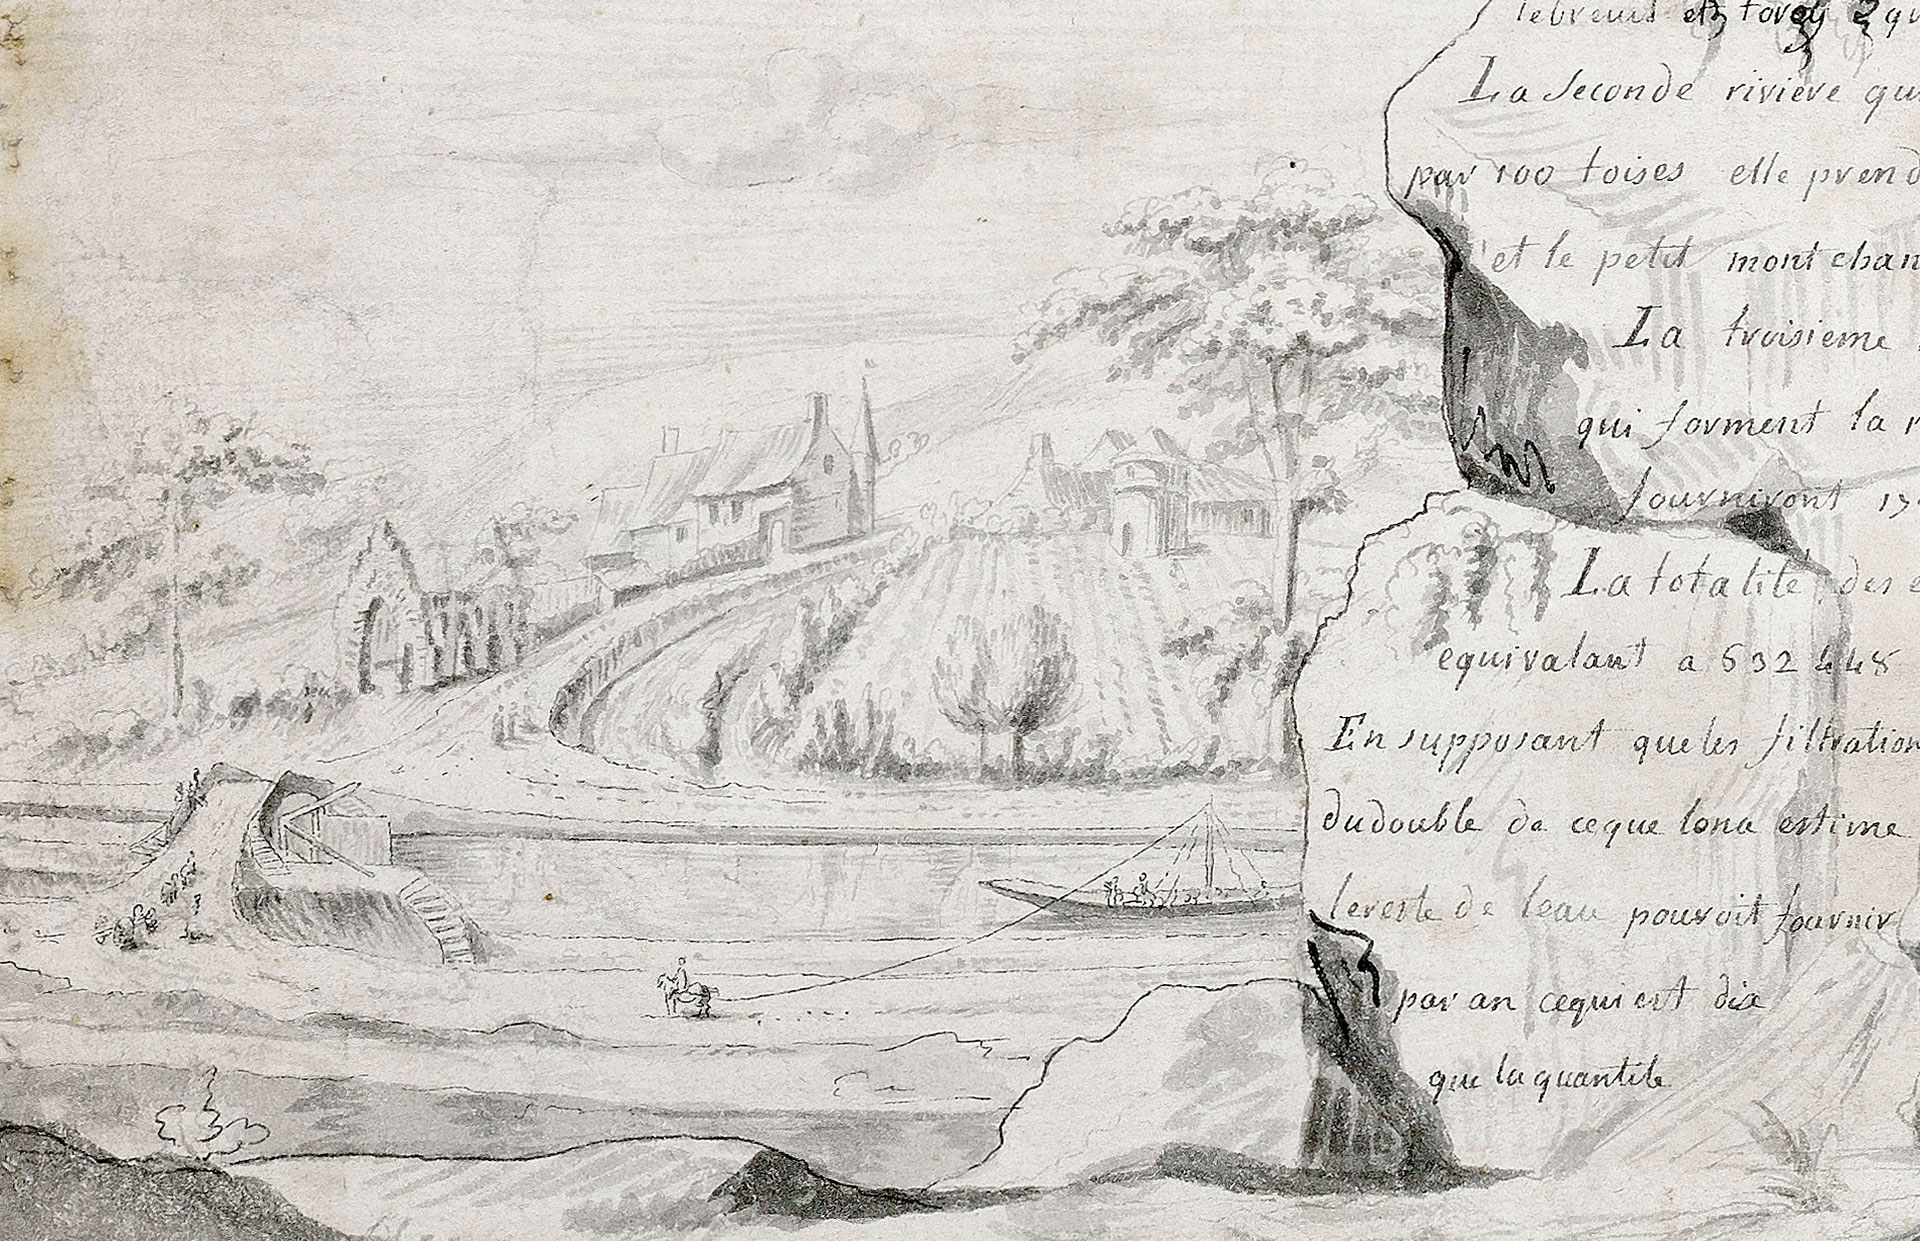 lebreuil et torcy qu
La seconde riviere qu
par 100 toises elle prend
et le petit mont chan
La troisieme
qui forment la r
fourniront 17
La totalite des e
equivalant a 532 448
En supposant que les filtration
du double de ce que lona estime
lereste de leau pouroit fournir
par an cequi est dix
que la quantite